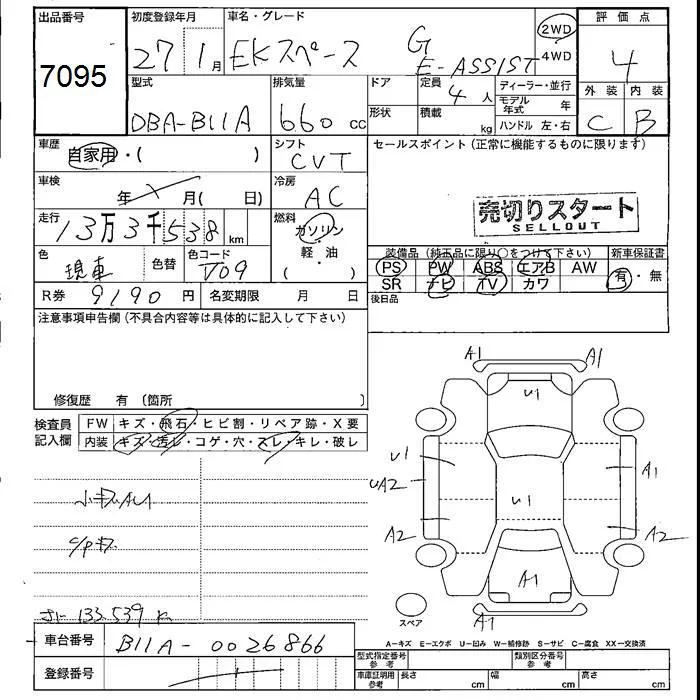 出品番号 初度登録年月 車名・グレード 評価点
7095 27年1月 EKスペース G E-ASSIST 2WD 4WD 4
型式 排気量 ドア 定員 4人 ディーラー・並行 外装 内装
DBA-B11A 660cc 形状 積載 kg モデル年式 年 C B
ハンドル 左・右
車歴 自家用・( ) シフト CVT セールスポイント(正常に機能するものに限ります)
車検 年 月( 日) 冷房 AC
売切りスタート
SELLOUT
走行 13万3千538km 燃料 ガソリン 軽・油 ( )
色 現車 色替 色コード V09
装備品(純正品に限り○をつけて下さい) 新車保証書
PS PW ABS エアB AW 有・無
SR ナビ TV カワ
R券 9190円 名変期限 月 日 後日品
注意事項申告欄(不具合内容等は具体的に記入して下さい)
修復歴 有(箇所 )
検査員記入欄 FW キズ・飛石・ヒビ割・リペア跡・X要
内装 キズ・汚レ・コゲ・穴・スレ・キレ・破レ
A1 A1
U1
U1 A1
UA2 U1
A2 A2
A1
A1
小キズAU
C/Pキズ
133.539 K
スペア
A-キズ E-エクボ U-凹み W-補修跡 S-サビ C-腐食 XX-交換済
車台番号 B11A-0026866
型式指定番号 参考 類別区分番号 参考
登録番号
車庫証明用 参考 長さ cm 幅 cm 高さ cm